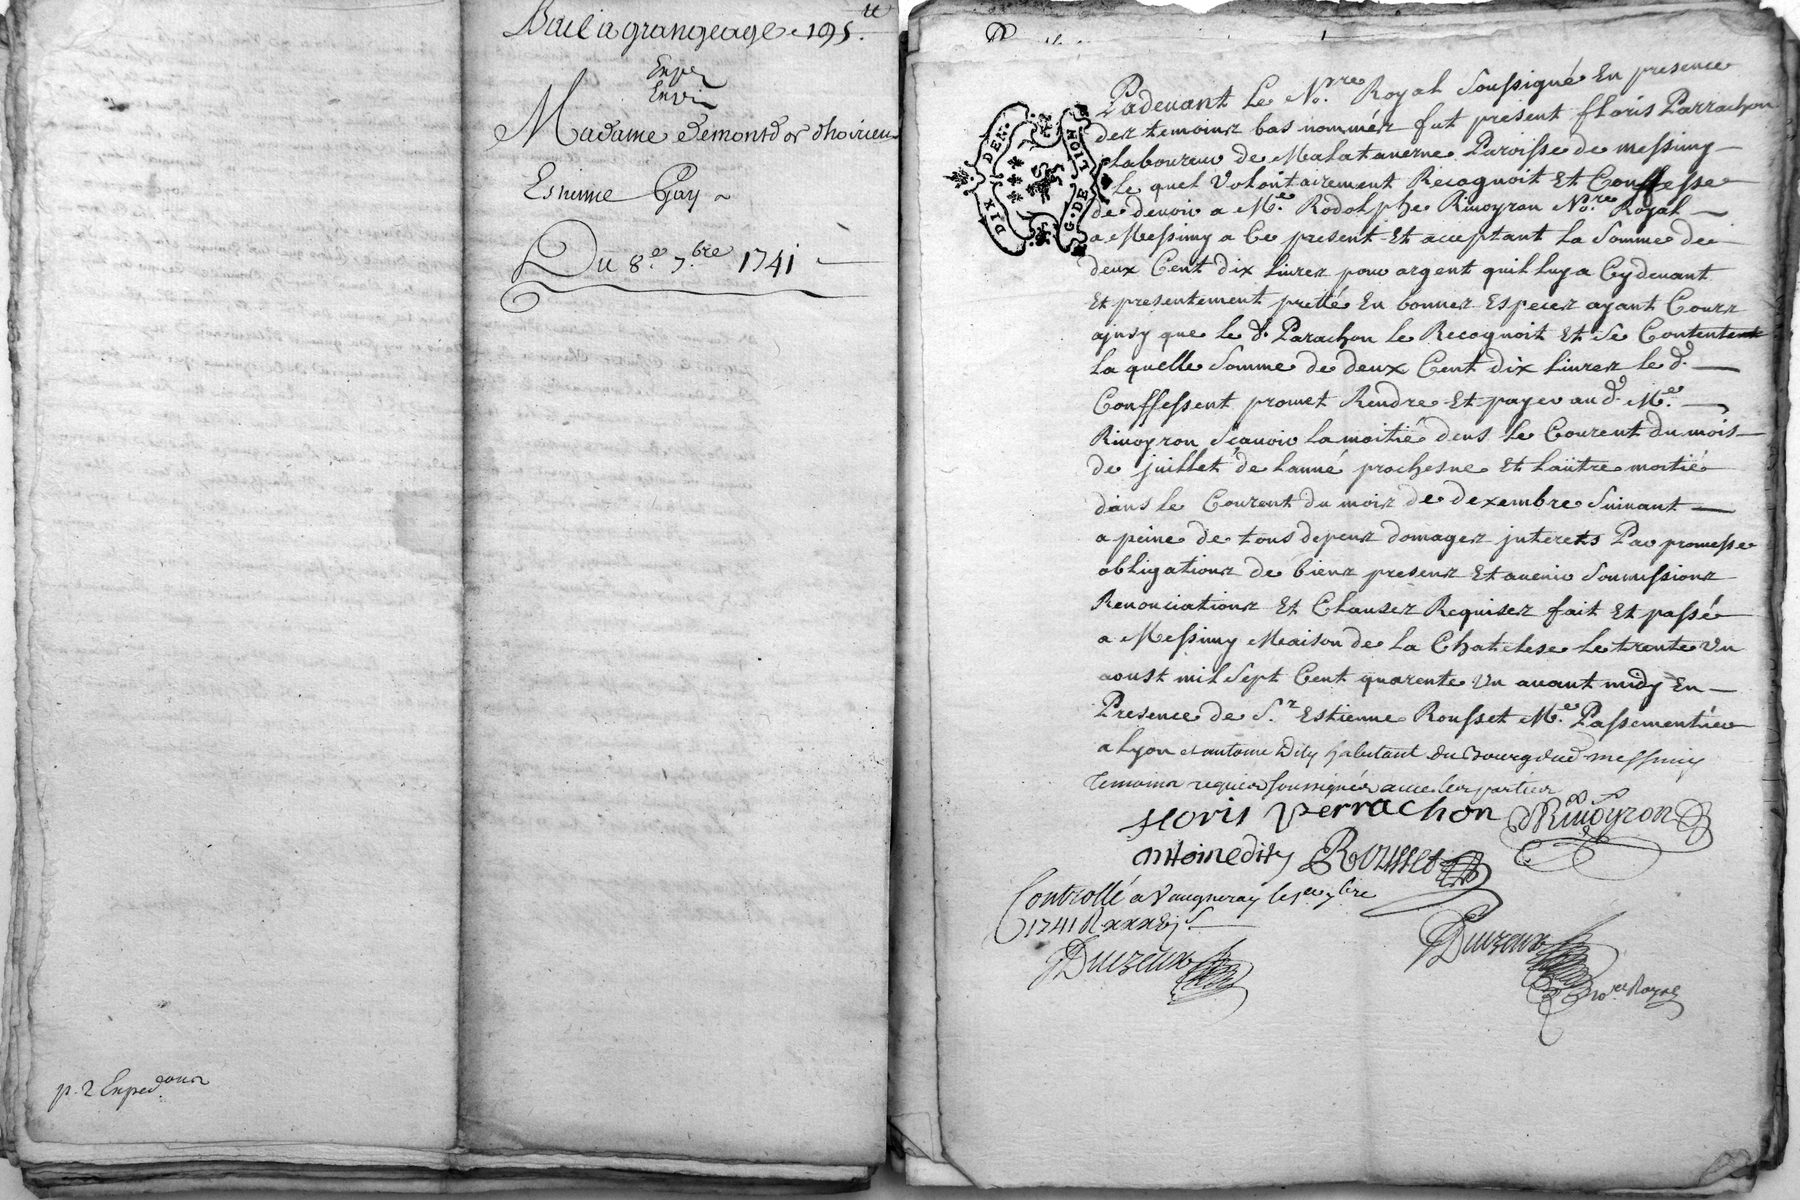 Bail a grangeage 195.tt
Expé
Envoi
Madame demontdor dhoirieu
Estienne Gay
Du 8.e 7.bre 1741
p. 2 Exped.ons
DIX DEN.
G. DE LION
Pardevant Le No.re Royal Soussigné En presence
des temoins bas nommés fut present floris Parrachon
Laboureur de Malataverne Paroisse de messimy
Le quel Volontairement Recognoit Et Confesse
de devoir a M.e Rodolphe Rivoyron No.re Royal
a Messimy a Ce present Et acceptant La Somme de
deux Cent dix Livres pour argent quil luy a Cydevant
Et presentement pretté En bonnes Especes ayant Cours
ainsy que le d. Parachon le Recognoit Et Se Contente
La quelle Somme de deux Cent dix Livres le d.
Confessent promet Rendre Et payer au d. M.e
Rivoyron Scavoir la moitié dens le Courent du mois
de juillet de Lanné prochesne Et Lautre moitié
dans le Courent du mois de dexembre Suivant
a peine de tous depens domages jnterets Par promesse
obligations de biens presens Et avenir Soumissions
Renonciations Et Clauses Requises fait Et passé
a Messimy Maison de La Chatelese Le trente Un
aoust mil Sept Cent quarente Un avant midy En
Presence de S.r Estienne Rousset M.e Passementier
a Lyon et antoine Dity habitant du Bourg dud messimy
temoins requis soussignés avec les parties
floris perrachon Rivoyron
antoine dity Rousset
Controllé a Vaugneray le 1er 7bre
1741 R
Duizeux
Duizeux
no.re Royal